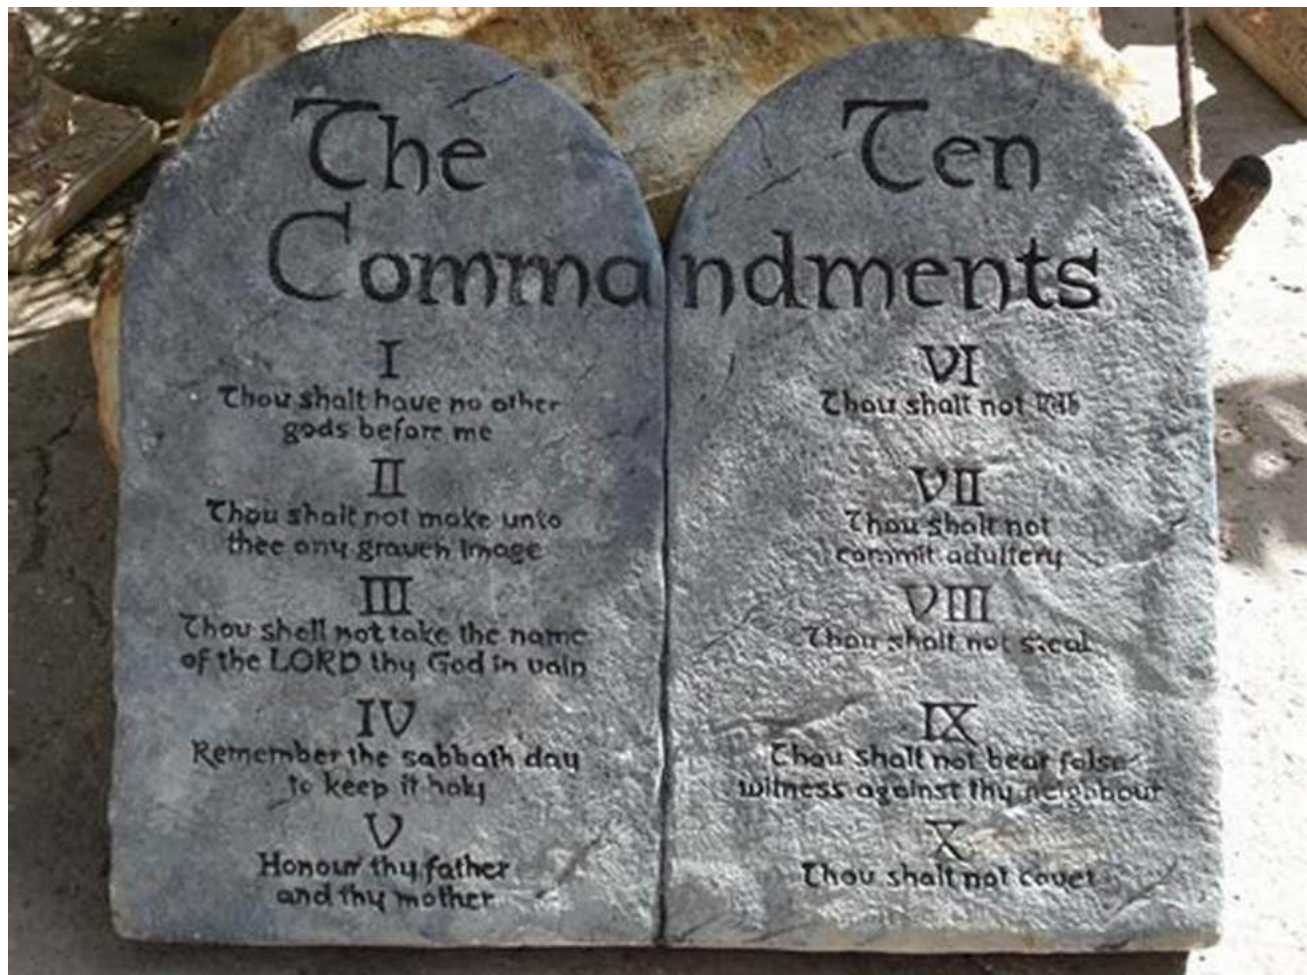 The Ten
Commandments
I
Thou shalt have no other
gods before me
II
Thou shalt not make unto
thee any graven image
III
Thou shall not take the name
of the LORD thy God in vain
IV
Remember the sabbath day
to keep it holy
V
Honour thy father
and thy mother
VI
Thou shalt not
VII
Thou shalt not
commit adultery
VIII
Thou shalt not steal
IX
Thou shalt not bear false
witness against thy neighbour
X
Thou shalt not covet